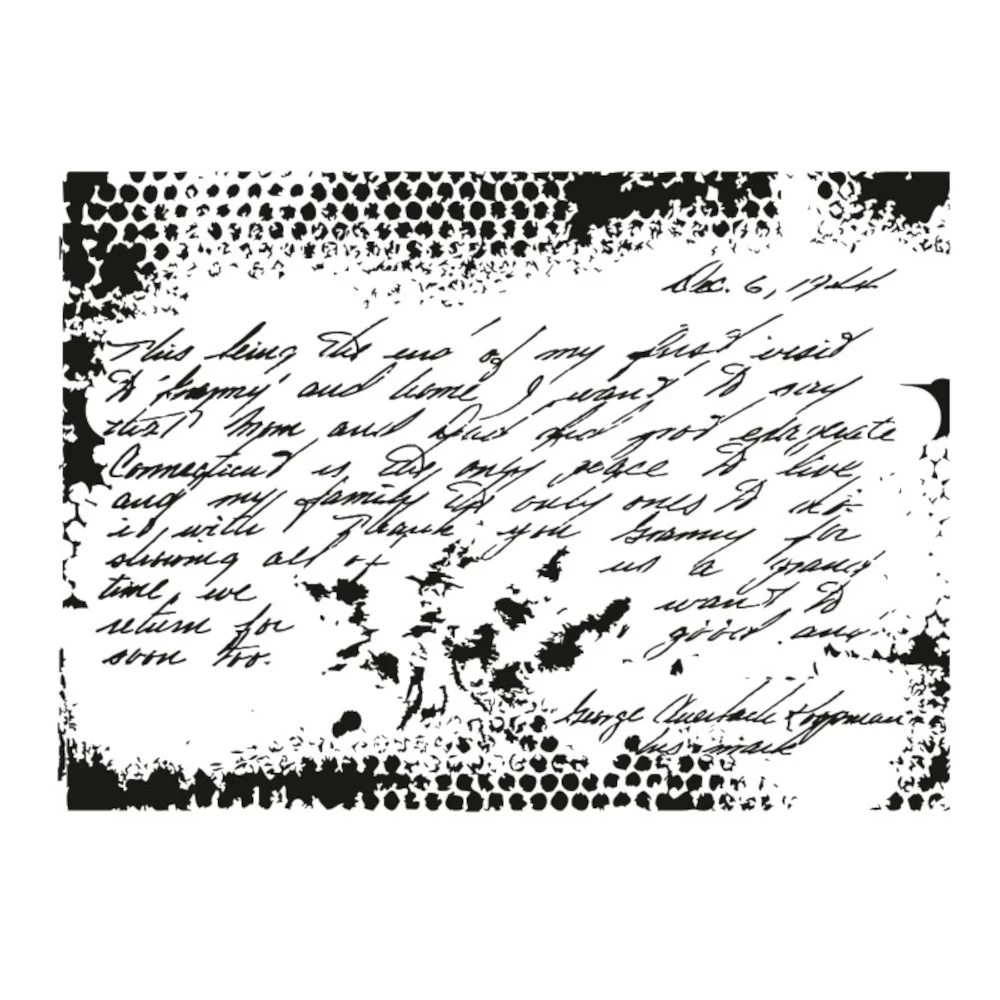 Dec. 6, 1944
This being the end of my first visit
to 'Grammy' and home I want to say
that Mom and Dad did good
Connecticut is the only place to live
and my family the only ones to do
it with Thank you Grammy for
showing all of us a grand
time, we want to
return for good and
soon too.
George Auerbach Hoffman
his mark